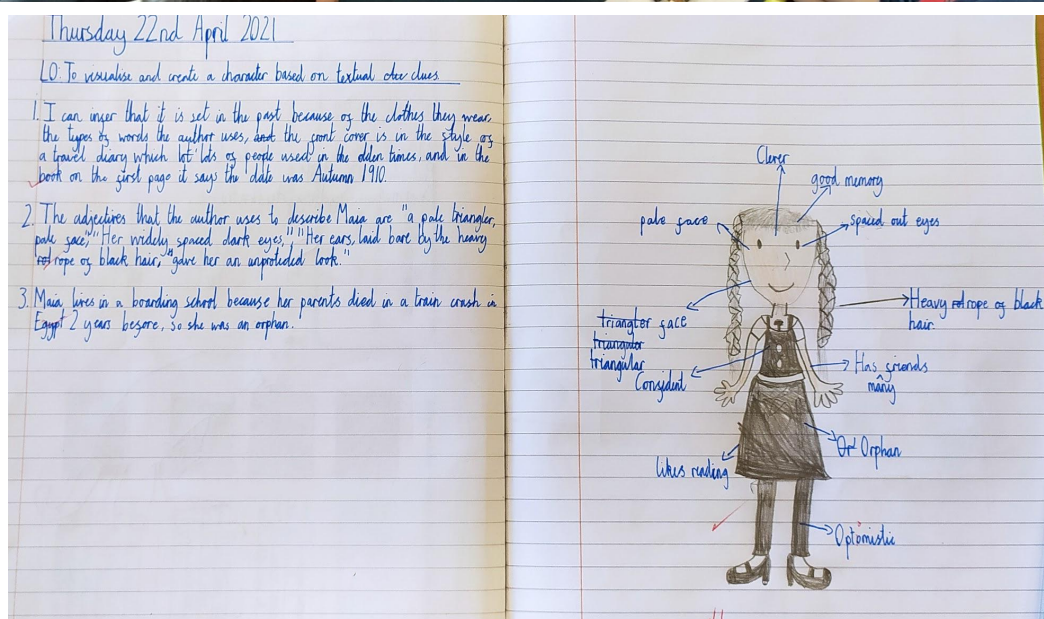 Thursday 22nd April 2021
LO: To visualise and create a character based on textual clee clues.
1. I can infer that it is set in the past because of the clothes they wear,
the types of words the author uses, and the front cover is in the style of
a travel diary which lot lots of people used in the olden times, and in the
book on the first page it says the date was Autumn 1910.
2. The adjectives that the author uses to describe Maia are "a pale triangler,
pale face," "Her widely spaced dark eyes," "Her ears, laid bare by the heavy
rope of black hair," "gave her an unprotected look."
3. Maia lives in a boarding school because her parents died in a train crash in
Egypt 2 years before, so she was an orphan.
Clever
good memory
pale face
spaced out eyes
Heavy rope of black
hair.
triangler face
triangular
triangular
Confident
Has friends
many
Or Orphan
likes reading
Optomistic